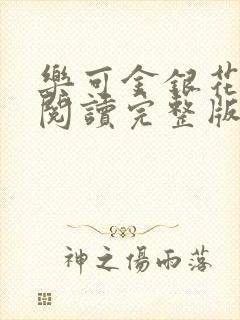 樂可金銀花
閱讀完整版
神之傷雨落